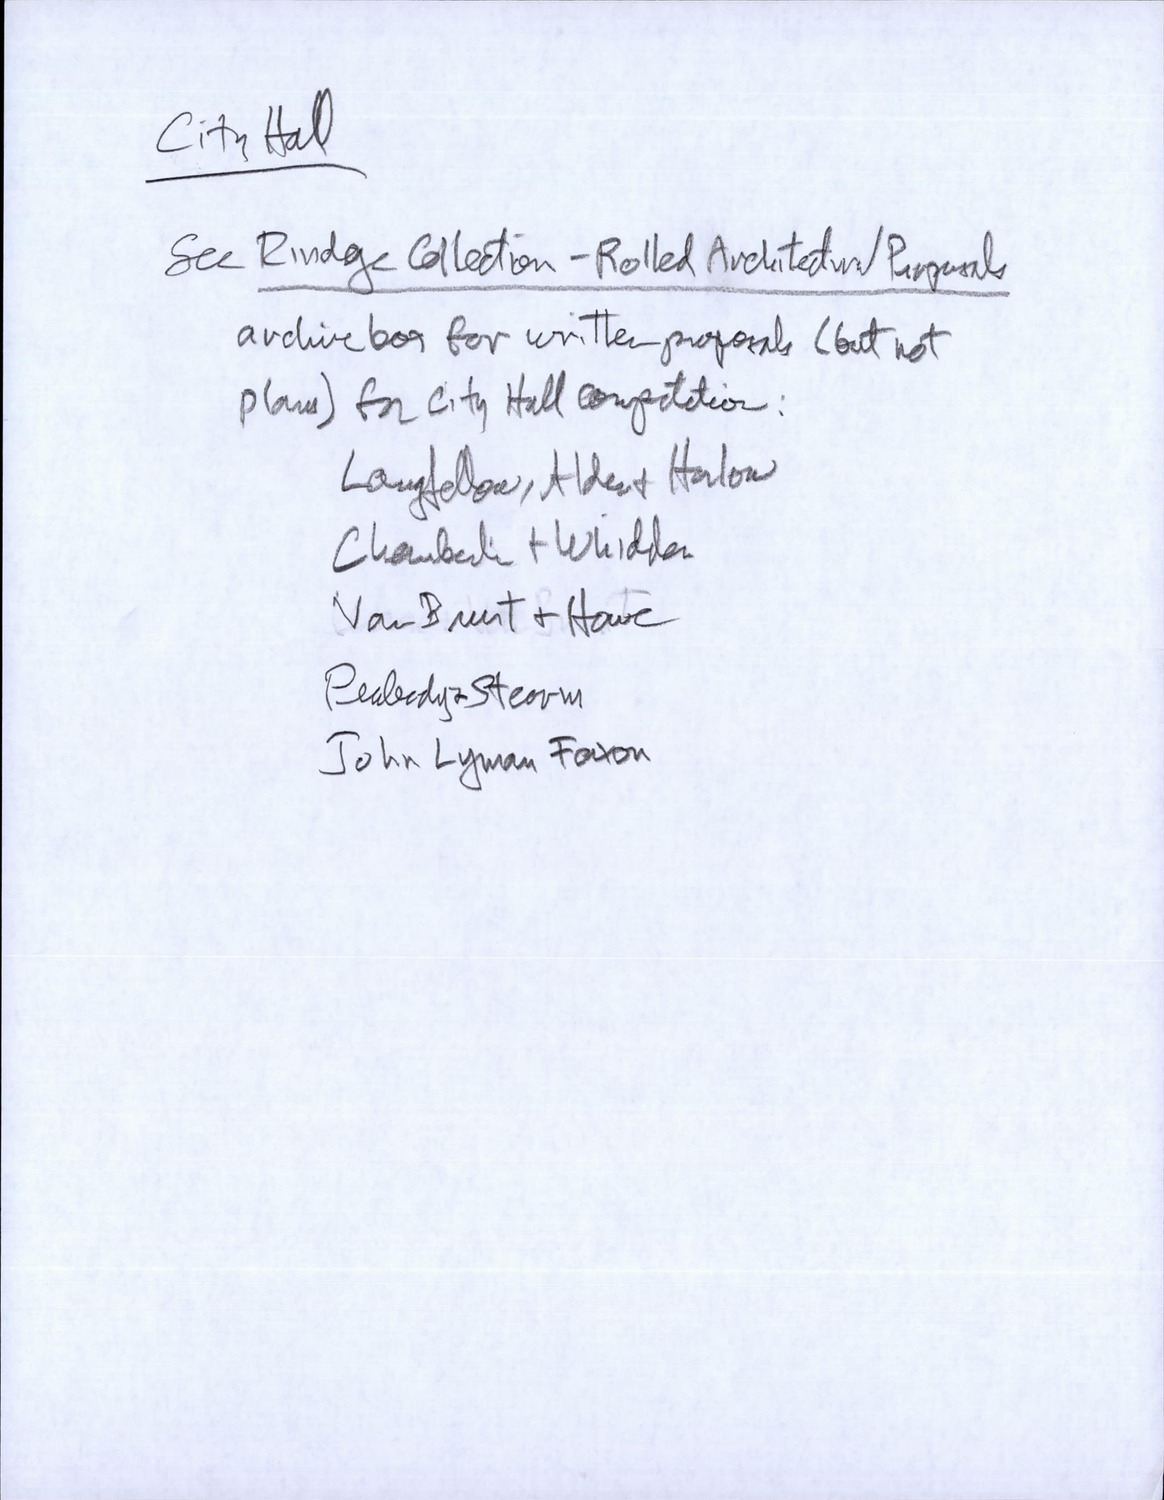 City Hall
See Rindge Collection - Rolled Architectural Proposals
archive box for written proposals (but not
plans) for City Hall competition:
Longfellow, Alden + Harlow
Chamberlin + Whidden
Van Brunt + Howe
Peabody + Stearns
John Lyman Faxon